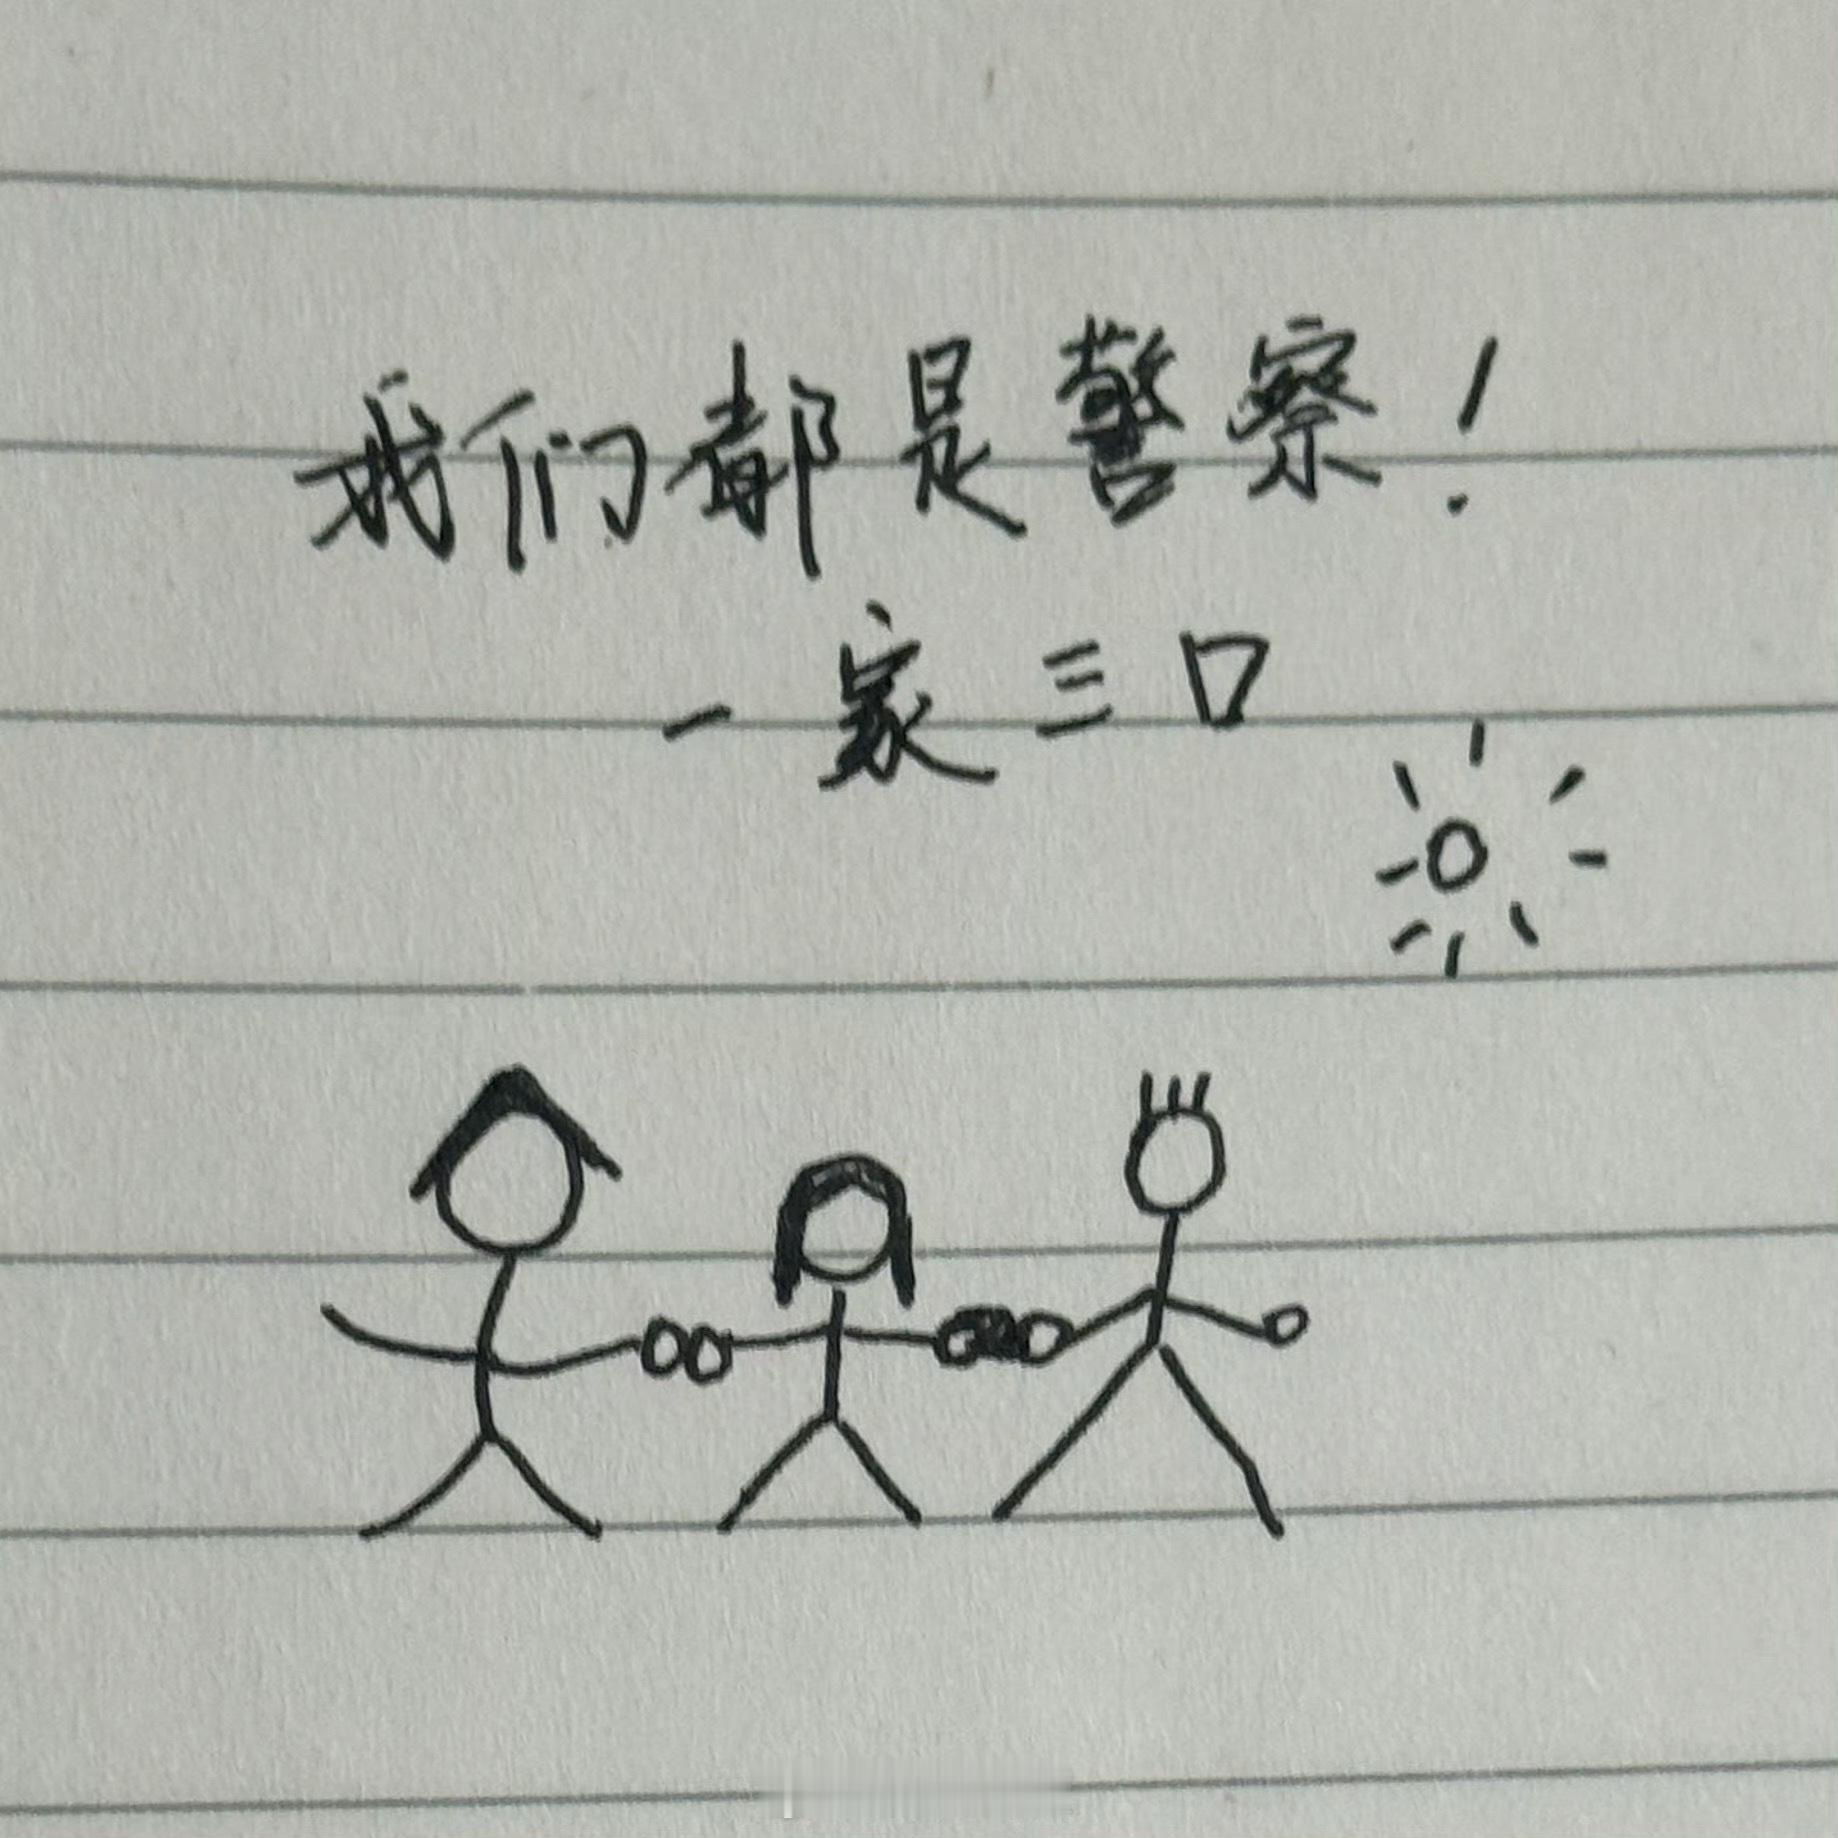 我们都是警察！
一家三口